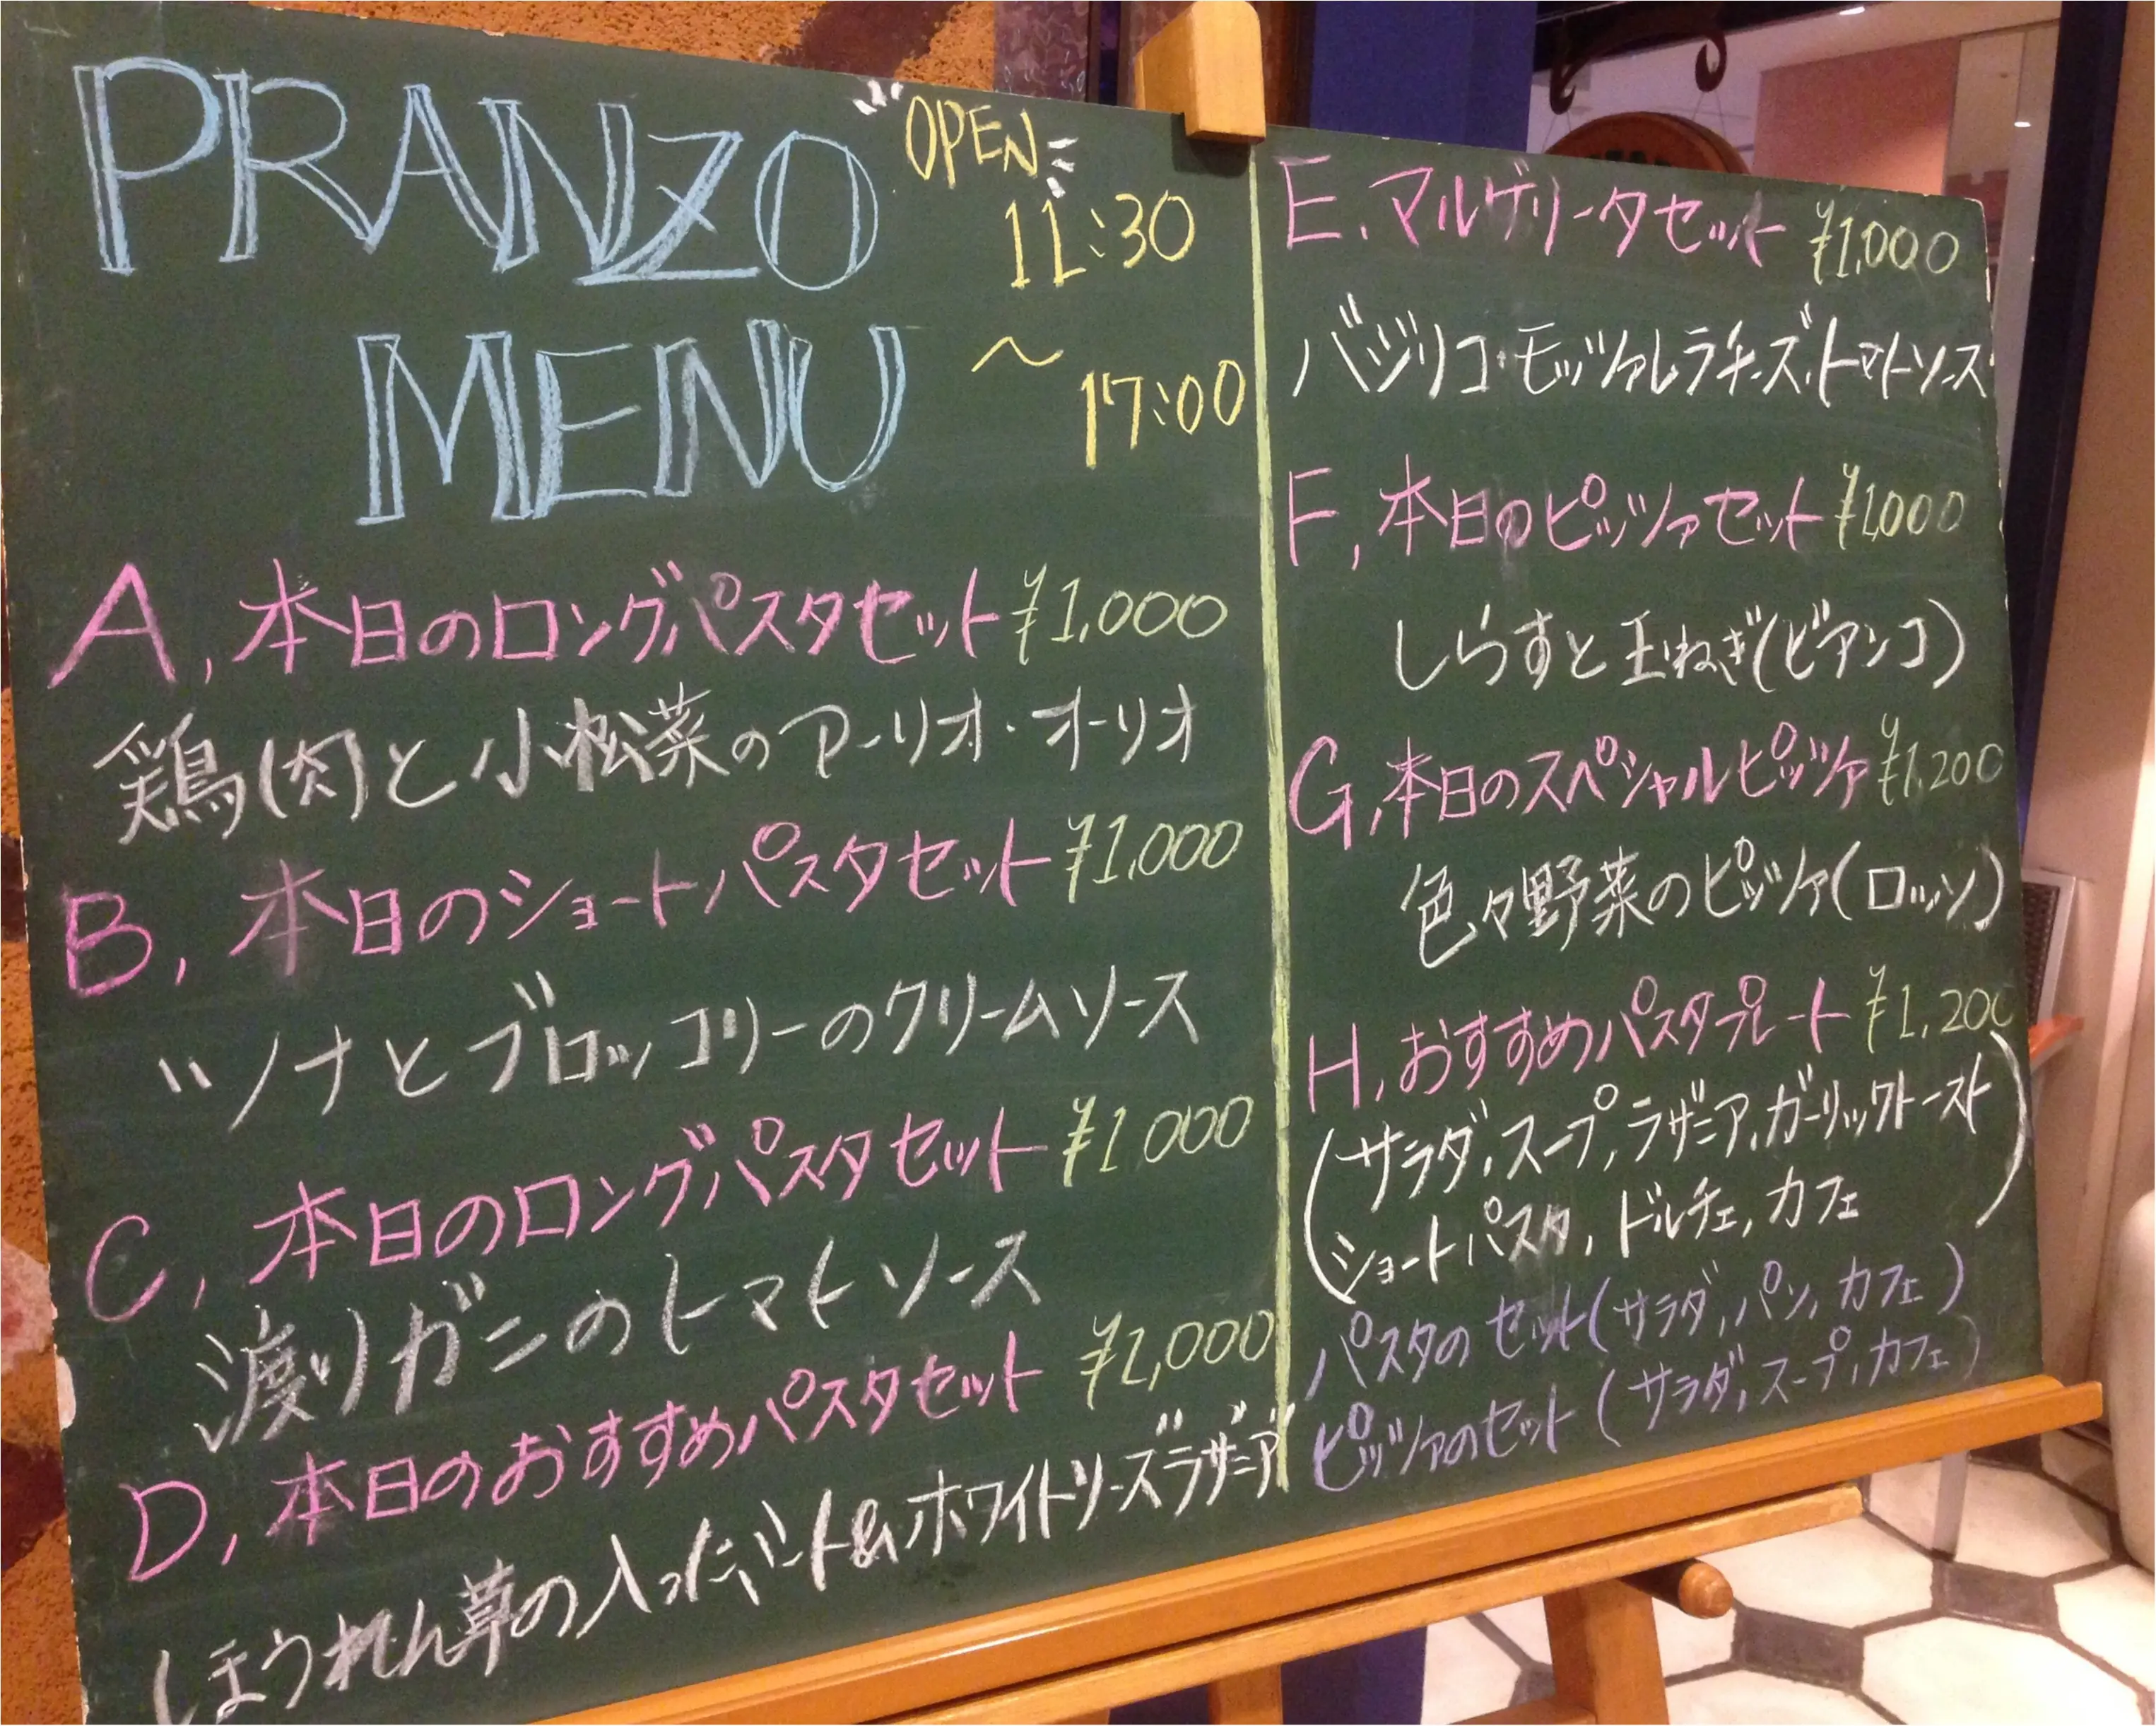 PRANZO
MENU
OPEN
11:30
〜
17:00
A, 本日のロングパスタセット ¥1,000
鶏(肉)と小松菜のアーリオ・オーリオ
B, 本日のショートパスタセット ¥1,000
ツナとブロッコリーのクリームソース
C, 本日のロングパスタセット ¥1000
渡りガニのトマトソース
D, 本日のおすすめパスタセット ¥1,000
ほうれん草の入ったミート&ホワイトソースラザニア
E. マルゲリータセット ¥1,000
バジリコ・モッツァレラチーズ・トマトソース
F, 本日のピッツァセット ¥1,000
しらすと玉ねぎ(ビアンコ)
G, 本日のスペシャルピッツァ ¥1,200
色々野菜のピッツァ(ロッソ)
H, おすすめパスタプレート ¥1,200
(サラダ, スープ, ラザニア, ガーリックトースト
ショートパスタ, ドルチェ, カフェ)
パスタのセット(サラダ, パン, カフェ)
ピッツァのセット(サラダ, スープ, カフェ)